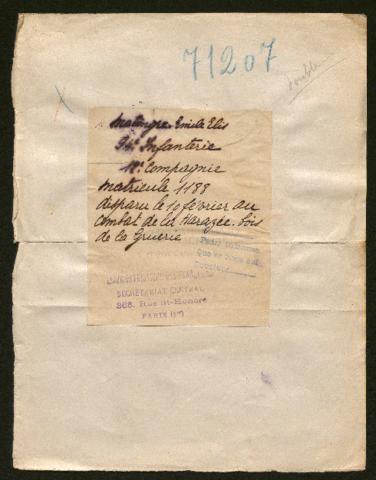 71207
double
Emile Elis
94e Infanterie
Compagnie
Matricule 1188
disparu le 10 fevrier au
combat de la Harazée. bois
de la Gruerie
SECRÉTARIAT CENTRAL
Rue St-Honoré
PARIS (1er)